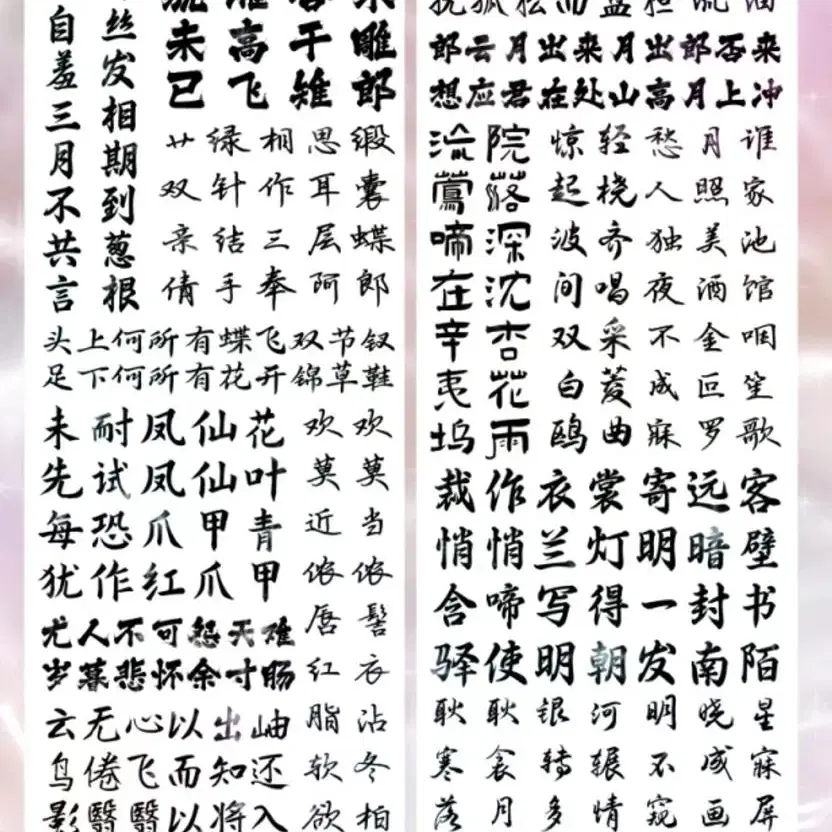 丝发相期到葱根
自羞三月不共言
雕郎
干雉
高飞
未已
艹绿相思缎
双针作耳囊
亲结三层蝶
倩手奉阿郎
头上何所有蝶飞双节钗
足下何所有花开锦草鞋
未耐凤仙花
先试凤仙叶
每恐爪甲青
犹作红爪甲
欢莫当侬髻衣沾冬柏
欢莫近侬唇红脂软欲
尤人不可怨天难
岁暮悲怀余寸肠
云无心以出岫
鸟倦飞而知还
影翳翳以将入
郎云月出来月出郎否来
想应君在处山高月上冲
院落深沈杏花雨
流莺啼在辛夷坞
谁家池馆咽笙歌
月照美酒金叵罗
愁人独夜不成寐
轻桡齐唱采菱曲
惊起波间双白鸥
裁作衣裳寄远客
悄悄兰灯明暗壁
含啼写得一封书
驿使明朝发南陌
耿耿银河明晓星
寒衾转辗不成寐
落月多情窥画屏